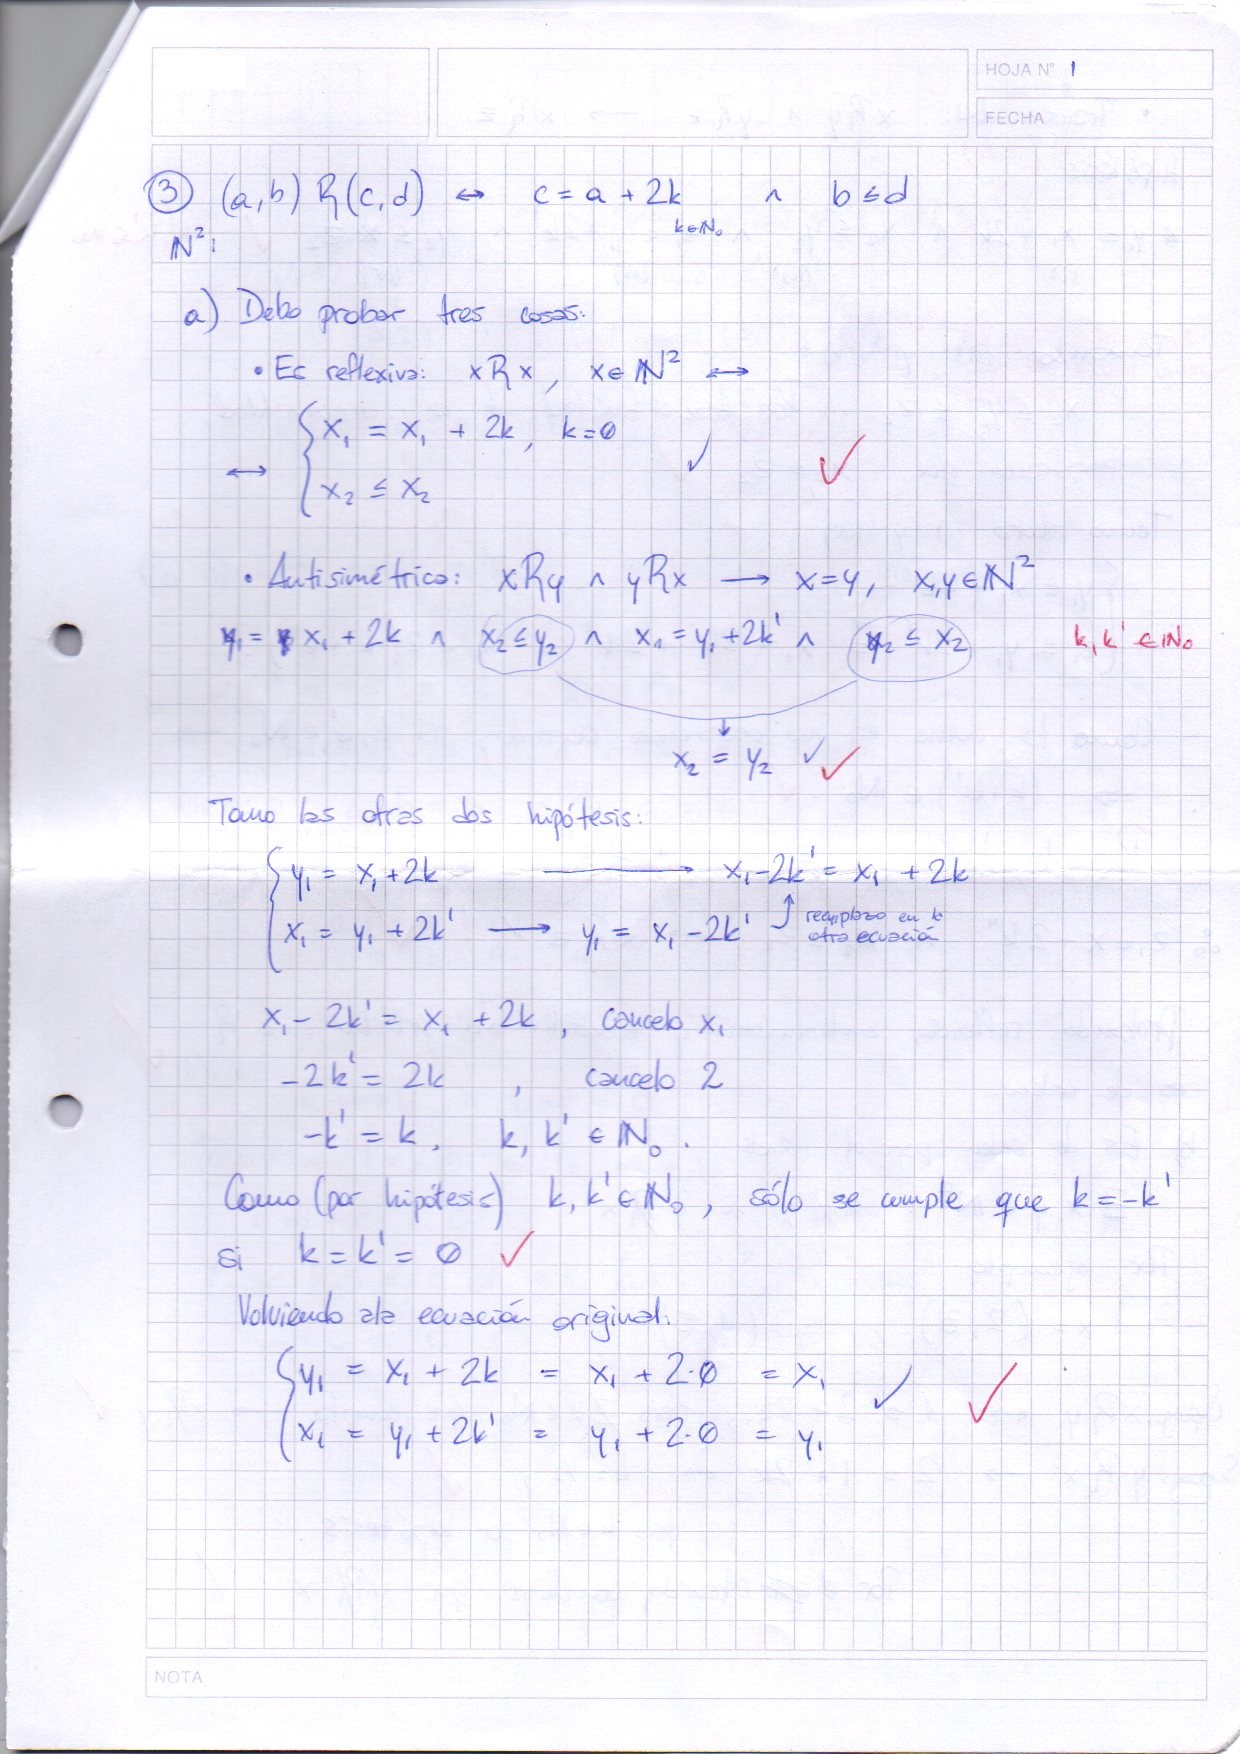 HOJA N° 1
FECHA
③ (a,b) R (c,d) ↔ c = a + 2k ∧ b ≤ d
k∈ℕ₀
ℕ²:
a) Debo probar tres cosas:
• Es reflexiva: xRx, x∈ℕ² ↔
↔ { x₁ = x₁ + 2k, k=0 ✓ ✓
x₂ ≤ x₂
• Antisimétrica: xRy ∧ yRx → x=y, x,y∈ℕ²
y₁ = x₁ + 2k ∧ x₂ ≤ y₂ ∧ x₁ = y₁ + 2k' ∧ y₂ ≤ x₂ k,k' ∈ ℕ₀
x₂ = y₂ ✓ ✓
Tomo las otras dos hipótesis:
{ y₁ = x₁ + 2k → x₁ - 2k' = x₁ + 2k
x₁ = y₁ + 2k' → y₁ = x₁ - 2k' reemplazo en la
otra ecuación
x₁ - 2k' = x₁ + 2k, cancelo x₁
-2k' = 2k, cancelo 2
-k' = k, k, k' ∈ ℕ₀.
Como (por hipótesis) k, k' ∈ ℕ₀, sólo se cumple que k = -k'
si k = k' = 0 ✓
Volviendo a la ecuación original:
{ y₁ = x₁ + 2k = x₁ + 2·0 = x₁ ✓ ✓
x₁ = y₁ + 2k' = y₁ + 2·0 = y₁
NOTA